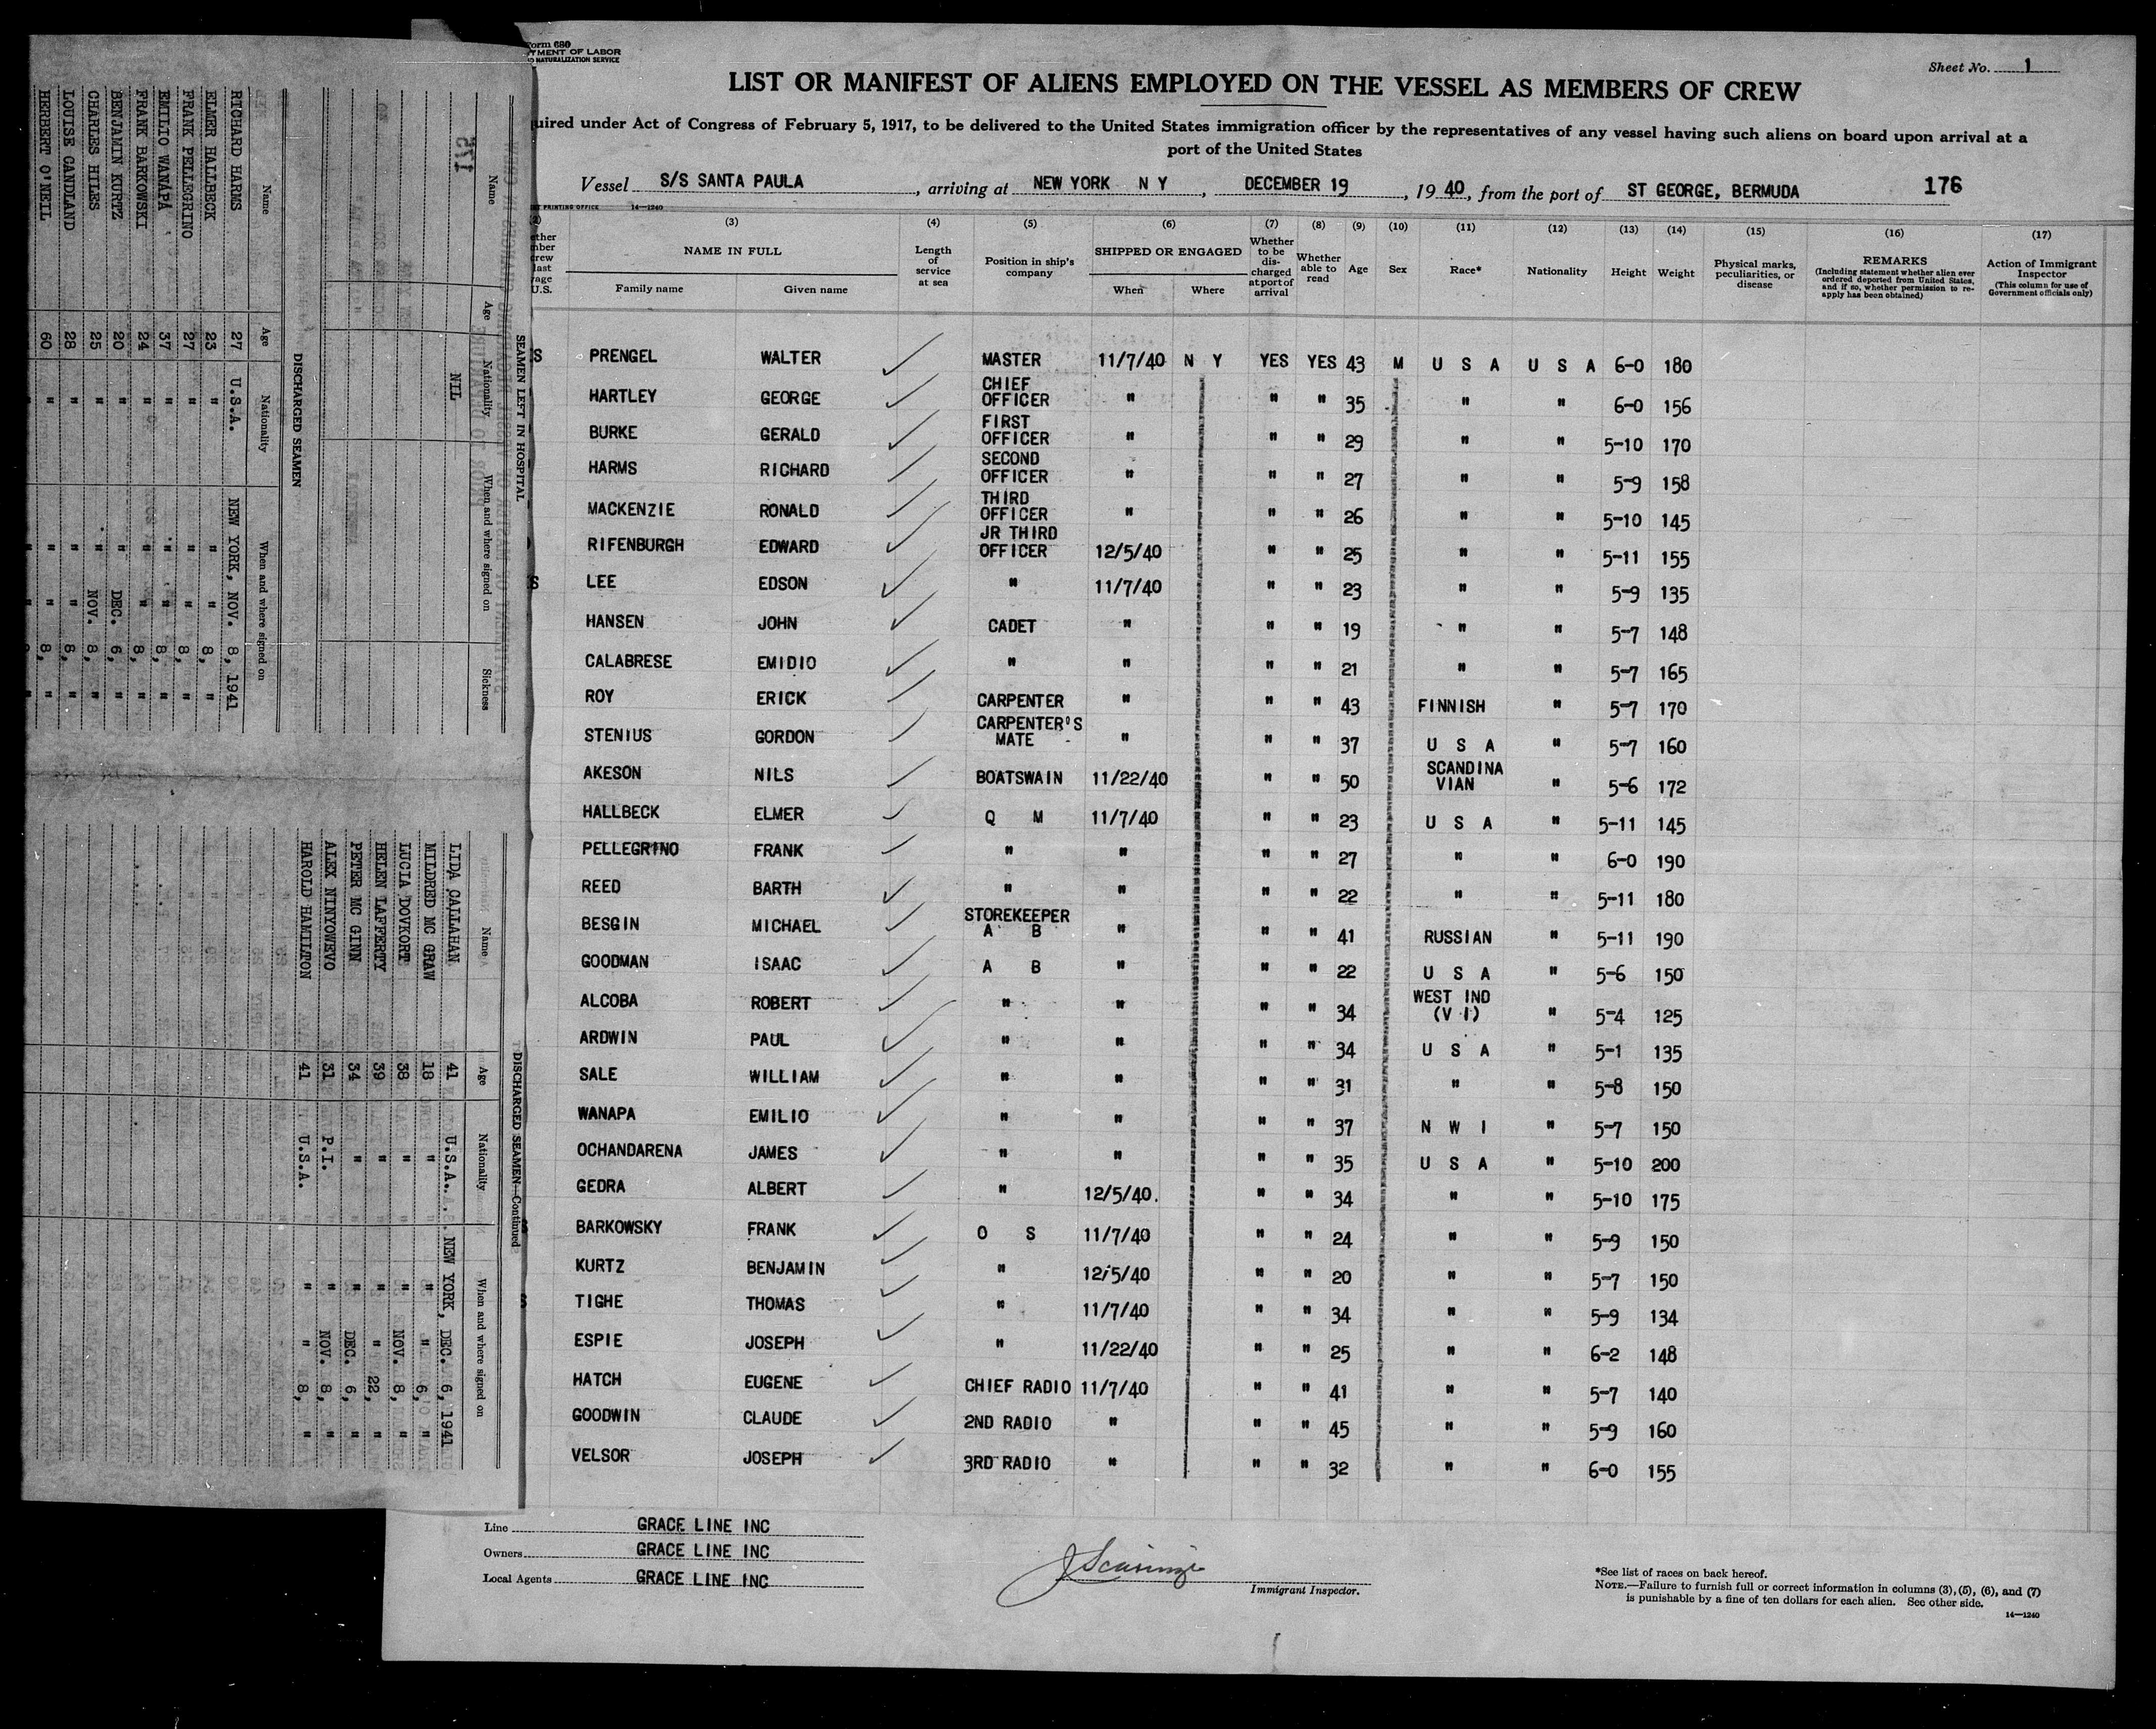 Form 680
TMENT OF LABOR
D NATURALIZATION SERVICE
Sheet No. 1
LIST OR MANIFEST OF ALIENS EMPLOYED ON THE VESSEL AS MEMBERS OF CREW
uired under Act of Congress of February 5, 1917, to be delivered to the United States immigration officer by the representatives of any vessel having such aliens on board upon arrival at a
port of the United States
Vessel S/S SANTA PAULA, arriving at NEW YORK N Y, DECEMBER 19, 1940, from the port of ST GEORGE, BERMUDA 176
PRINTING OFFICE 14—1240
(2) (3) (4) (5) (6) (7) (8) (9) (10) (11) (12) (13) (14) (15) (16) (17)
NAME IN FULL
Family name Given name
Length of service at sea
Position in ship's company
SHIPPED OR ENGAGED
When Where
Whether to be discharged at port of arrival
Whether able to read
Age Sex Race* Nationality Height Weight
Physical marks, peculiarities, or disease
REMARKS
(Including statement whether alien ever ordered deported from United States, and if so, whether permission to reapply has been obtained)
Action of Immigrant Inspector
(This column for use of Government officials only)
S PRENGEL WALTER MASTER 11/7/40 N Y YES YES 43 M U S A U S A 6-0 180
HARTLEY GEORGE CHIEF OFFICER " " " 35 " " 6-0 156
BURKE GERALD FIRST OFFICER " " " 29 " " 5-10 170
HARMS RICHARD SECOND OFFICER " " " 27 " " 5-9 158
MACKENZIE RONALD THIRD OFFICER " " " 26 " " 5-10 145
RIFENBURGH EDWARD JR THIRD OFFICER 12/5/40 " " 25 " " 5-11 155
S LEE EDSON " 11/7/40 " " 23 " " 5-9 135
HANSEN JOHN CADET " " " 19 " " 5-7 148
CALABRESE EMIDIO " " " " 21 " " 5-7 165
ROY ERICK CARPENTER " " " 43 FINNISH " 5-7 170
STENIUS GORDON CARPENTER'S MATE " " " 37 U S A " 5-7 160
AKESON NILS BOATSWAIN 11/22/40 " " 50 SCANDINAVIAN " 5-6 172
HALLBECK ELMER Q M 11/7/40 " " 23 U S A " 5-11 145
PELLEGRINO FRANK " " " " 27 " " 6-0 190
REED BARTH " " " " 22 " " 5-11 180
BESGIN MICHAEL STOREKEEPER A B " " " 41 RUSSIAN " 5-11 190
GOODMAN ISAAC A B " " " 22 U S A " 5-6 150
ALCOBA ROBERT " " " " 34 WEST IND (V I) " 5-4 125
ARDWIN PAUL " " " " 34 U S A " 5-1 135
SALE WILLIAM " " " " 31 " " 5-8 150
WANAPA EMILIO " " " " 37 N W I " 5-7 150
OCHANDARENA JAMES " " " " 35 U S A " 5-10 200
GEDRA ALBERT " 12/5/40. " " 34 " " 5-10 175
BARKOWSKY FRANK O S 11/7/40 " " 24 " " 5-9 150
KURTZ BENJAMIN " 12/5/40 " " 20 " " 5-7 150
S TIGHE THOMAS " 11/7/40 " " 34 " " 5-9 134
ESPIE JOSEPH " 11/22/40 " " 25 " " 6-2 148
HATCH EUGENE CHIEF RADIO 11/7/40 " " 41 " " 5-7 140
GOODWIN CLAUDE 2ND RADIO " " " 45 " " 5-9 160
VELSOR JOSEPH 3RD RADIO " " " 32 " " 6-0 155
Line GRACE LINE INC
Owners GRACE LINE INC
Local Agents GRACE LINE INC
Immigrant Inspector.
*See list of races on back hereof.
NOTE.—Failure to furnish full or correct information in columns (3), (5), (6), and (7)
is punishable by a fine of ten dollars for each alien. See other side.
14—1240
SEAMEN LEFT IN HOSPITAL
Name Age Nationality When and where signed on Sickness
175
NIL
DISCHARGED SEAMEN
Name Age Nationality When and where signed on
RICHARD HARMS 27 U.S.A. NEW YORK, NOV. 8, 1941
ELMER HALLBECK 23 " " " 8, "
FRANK PELLEGRINO 27 " " " 8, "
EMILIO WANAPA 37 " " " 8, "
FRANK BARKOWSKI 24 " " " 8, "
BENJAMIN KURTZ 20 " " DEC. 6, "
CHARLES HILES 25 " " NOV. 8, "
LOUISE CANDLAND 28 " " " 8, "
HERBERT O'NEIL 60 " " " 8, "
DISCHARGED SEAMEN—Continued
Name Age Nationality When and where signed on
LIDA CALLAHAN 41 U.S.A. NEW YORK, DEC. 6, 1941
MILDRED MC GRAW 18 " " " 6, "
LUCIA DOVKORT 38 " " NOV. 8, "
HELEN LAFFERTY 39 " " " 22, "
PETER MC GINN 34 " " DEC. 6, "
ALEX NINYOWEVO 31 P.I. " NOV. 8, "
HAROLD HAMILTON 41 U.S.A. " " 8, "